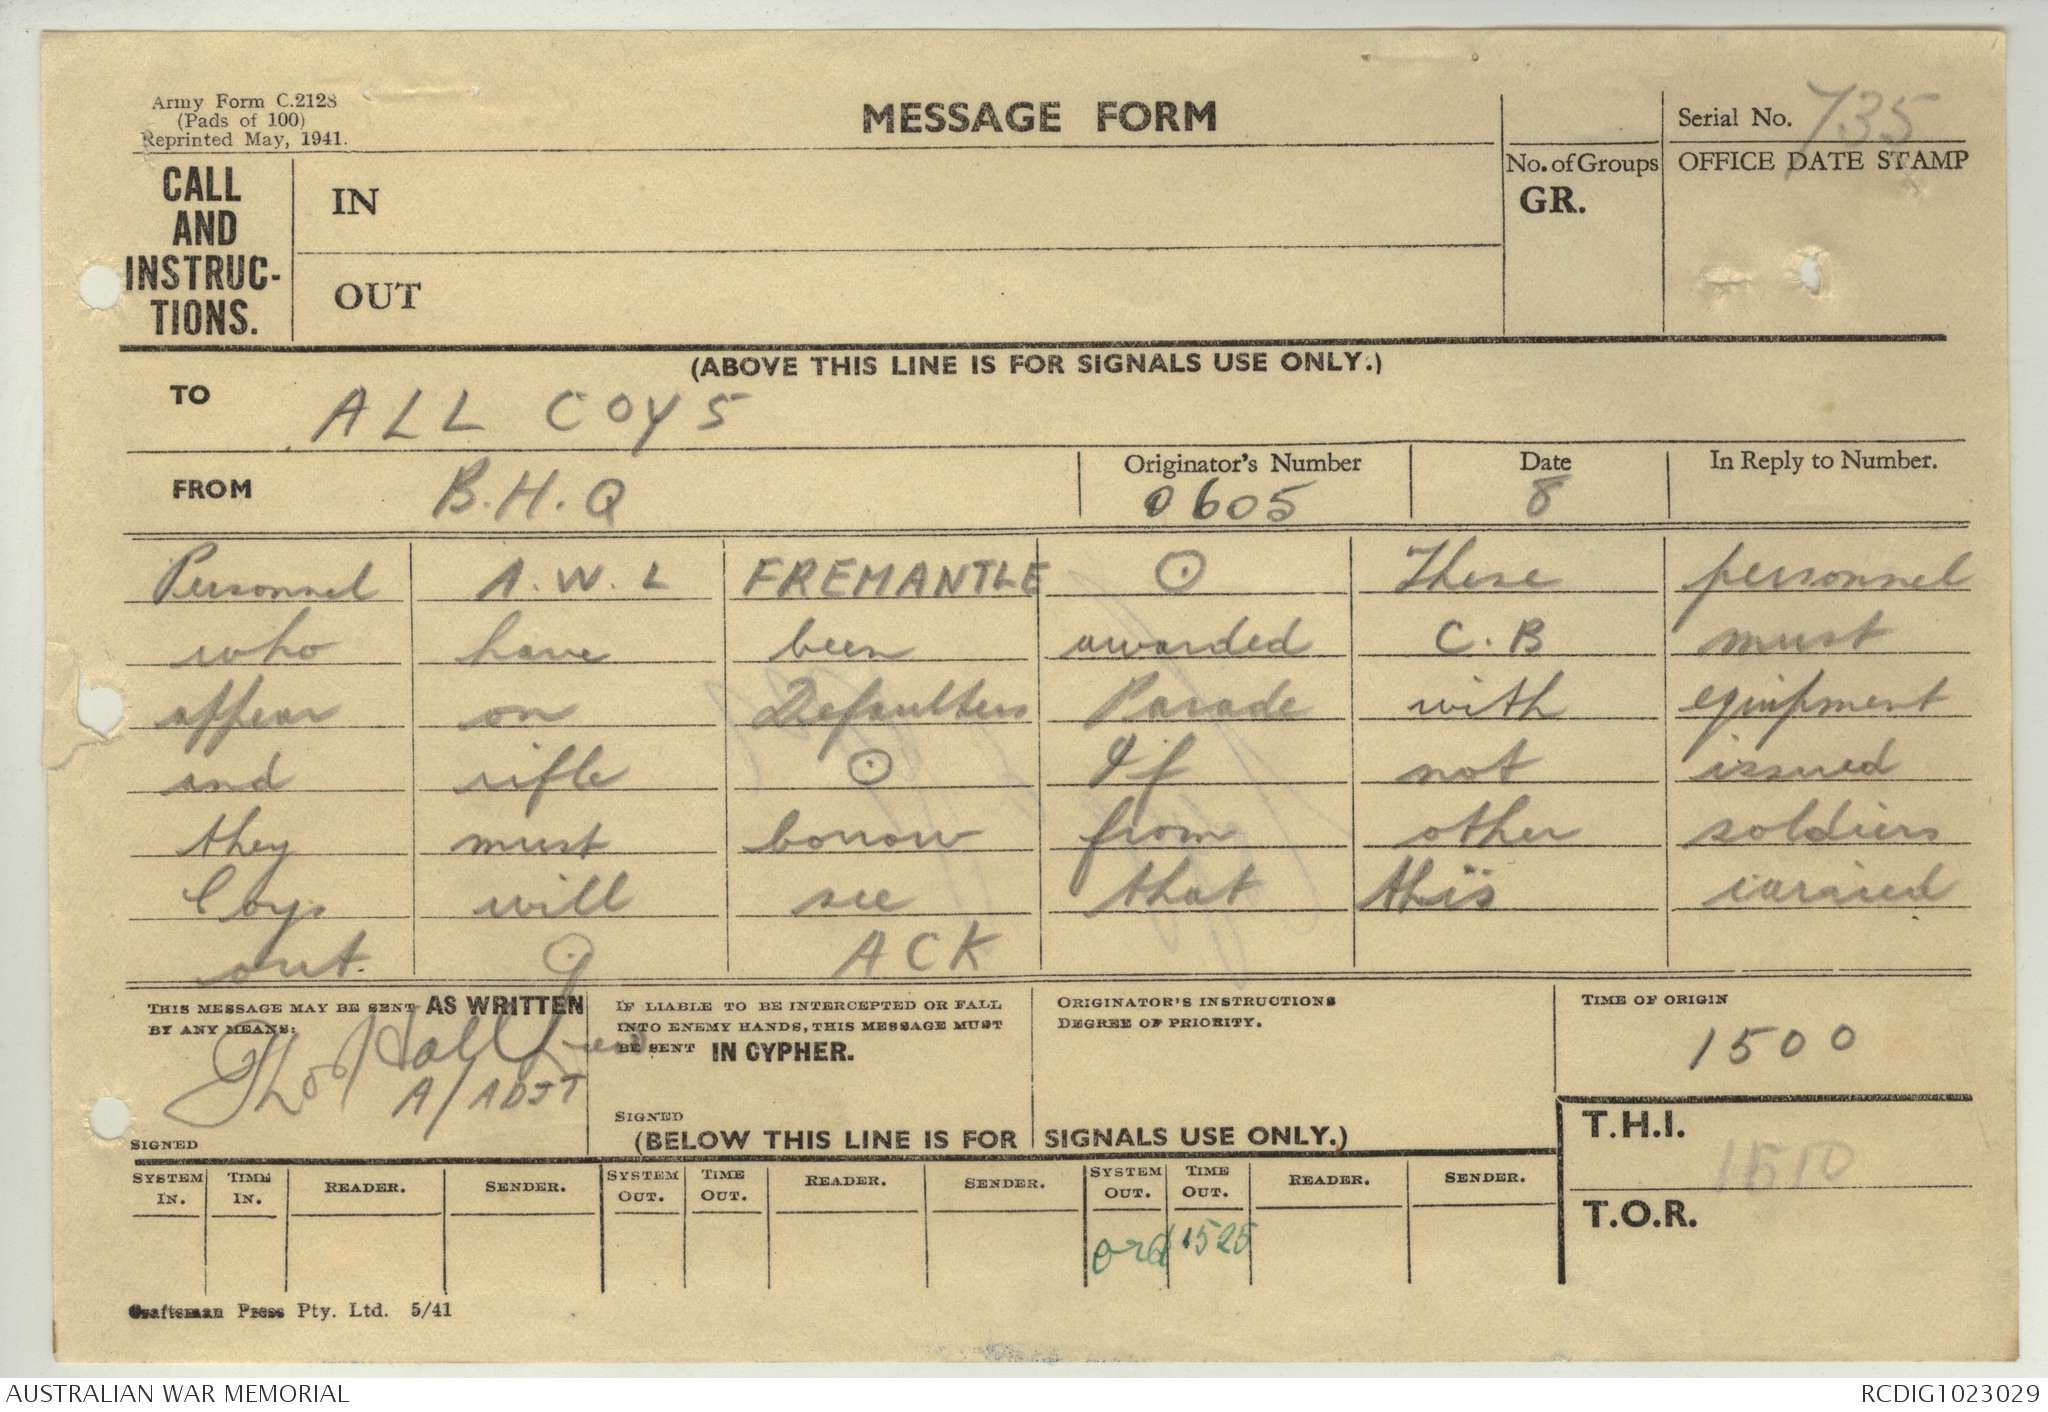 Army Form C.2128
(Pads of 100)
Reprinted May, 1941.
MESSAGE FORM
Serial No. 735
CALL
AND
INSTRUC-
TIONS.
IN
OUT
No. of Groups
GR.
OFFICE DATE STAMP
(ABOVE THIS LINE IS FOR SIGNALS USE ONLY.)
TO ALL COYS
FROM B.H.Q
Originator's Number
0605
Date
8
In Reply to Number.
Personnel A.W.L FREMANTLE ⊙ These personnel
who have been awarded C.B must
appear on Defaulters Parade with equipment
and rifle ⊙ If not issued
they must borrow from other soldiers
Coys will see that this carried
out. ⊙ ACK
THIS MESSAGE MAY BE SENT AS WRITTEN
BY ANY MEANS:
A/ADJT
SIGNED
IF LIABLE TO BE INTERCEPTED OR FALL
INTO ENEMY HANDS, THIS MESSAGE MUST
BE SENT IN CYPHER.
SIGNED
ORIGINATOR'S INSTRUCTIONS
DEGREE OF PRIORITY.
TIME OF ORIGIN
1500
(BELOW THIS LINE IS FOR SIGNALS USE ONLY.)
T.H.I.
1510
T.O.R.
SYSTEM IN. TIME IN. READER. SENDER. SYSTEM OUT. TIME OUT. READER. SENDER. SYSTEM OUT. TIME OUT. READER. SENDER.
ord 1525
Craftsman Press Pty. Ltd. 5/41
AUSTRALIAN WAR MEMORIAL
RCDIG1023029